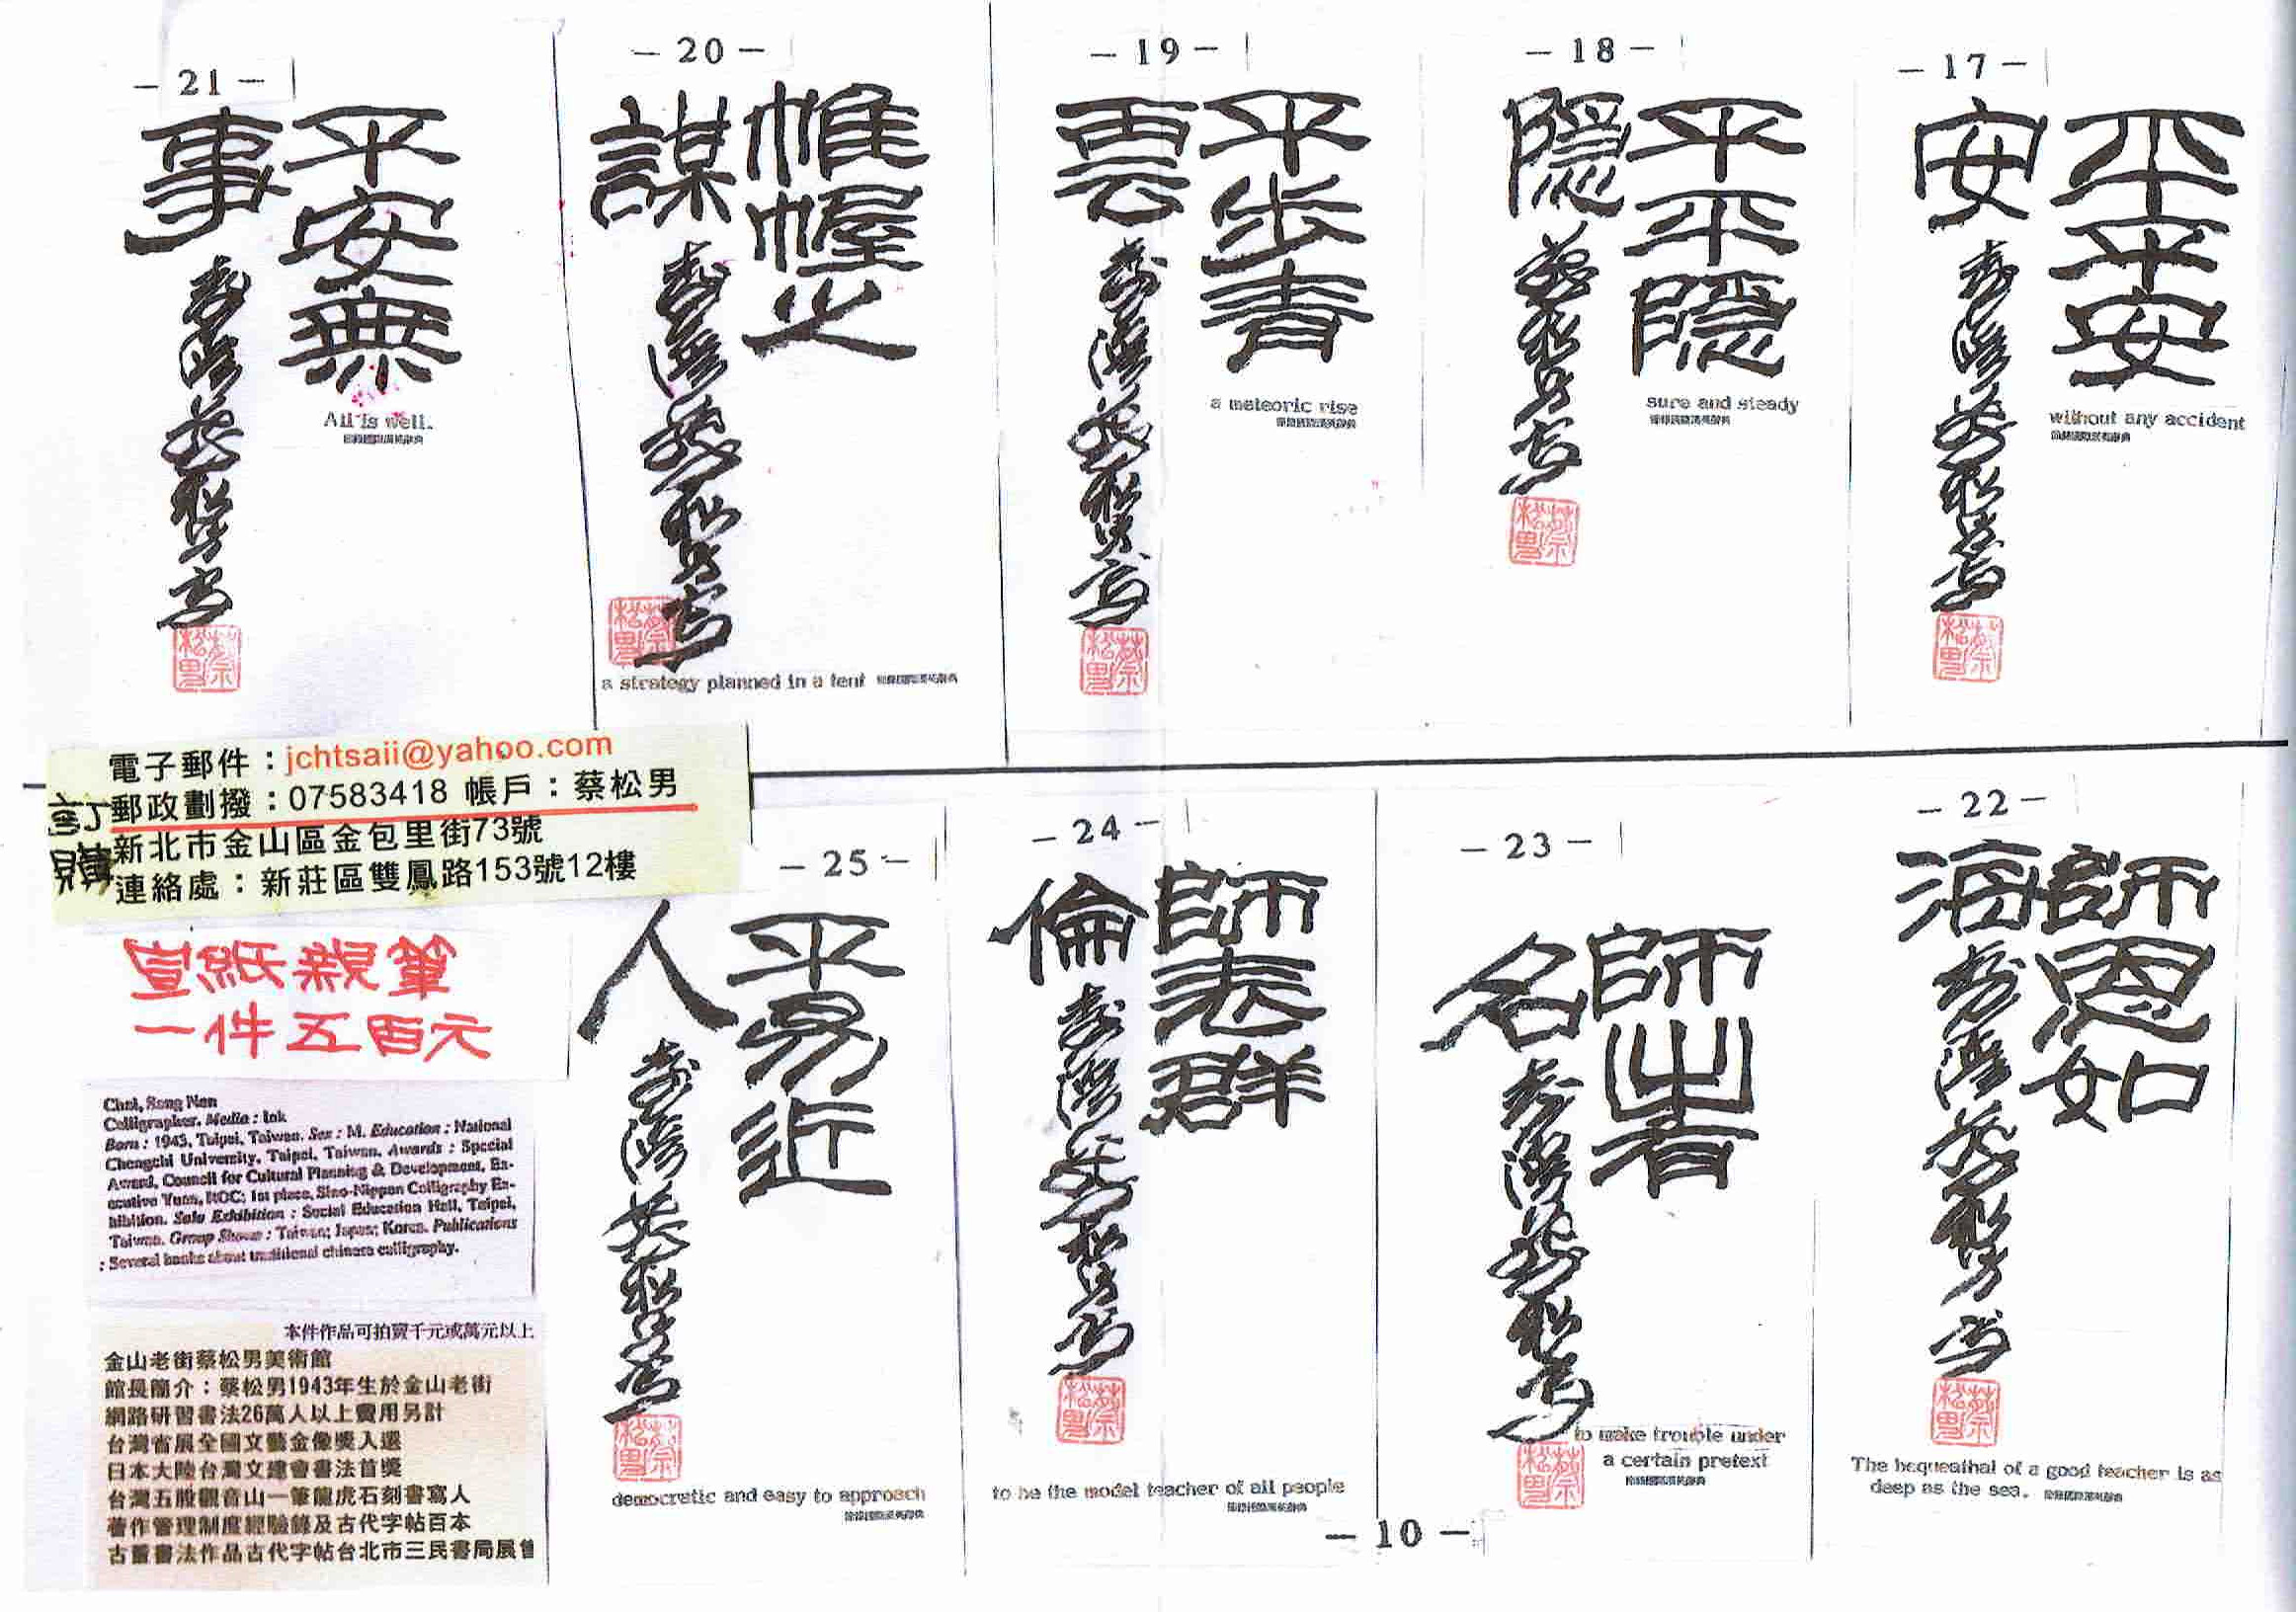 －17－
平平安
安
臺灣蔡松男書
without any accident
－18－
平平隱
隱
蔡松男書
sure and steady
－19－
平步青
雲
臺灣蔡松男書
a meteoric rise
－20－
帷幄之
謀
臺灣蔡松男書
a strategy planned in a tent
－21－
平安無
事
臺灣蔡松男書
All is well.
－22－
師恩如
海
臺灣蔡松男書
The bequeathal of a good teacher is as
deep as the sea.
－23－
師出有
名
臺灣蔡松男書
to make trouble under
a certain pretext
－24－
師表群
倫
臺灣蔡松男書
to be the model teacher of all people
－25－
平易近
人
臺灣蔡松男書
democratic and easy to approach
電子郵件：jchtsaii@yahoo.com
訂購
郵政劃撥：07583418 帳戶：蔡松男
新北市金山區金包里街73號
連絡處：新莊區雙鳳路153號12樓
宣紙親筆
一件五百元
Chai, Sung Nan
Calligrapher. Media : Ink
Born : 1943, Taipei, Taiwan. Sex : M. Education : National
Chengchi University, Taipei, Taiwan. Awards : Special
Award, Council for Cultural Planning & Development, Ex-
ecutive Yuan, ROC; 1st place, Sino-Nippon Calligraphy Ex-
hibition. Solo Exhibition : Social Education Hall, Taipei,
Taiwan. Group Shows : Taiwan; Japan; Korea. Publications
: Several books about traditional chinese calligraphy.
本件作品可拍賣千元或萬元以上
金山老街蔡松男美術館
館長簡介：蔡松男1943年生於金山老街
網路研習書法26萬人以上費用另計
台灣省展全國文藝金像獎入選
日本大陸台灣文建會書法首獎
台灣五股觀音山一筆龍虎石刻書寫人
著作管理制度經驗錄及古代字帖百本
古董書法作品古代字帖台北市三民書局展售
－10－